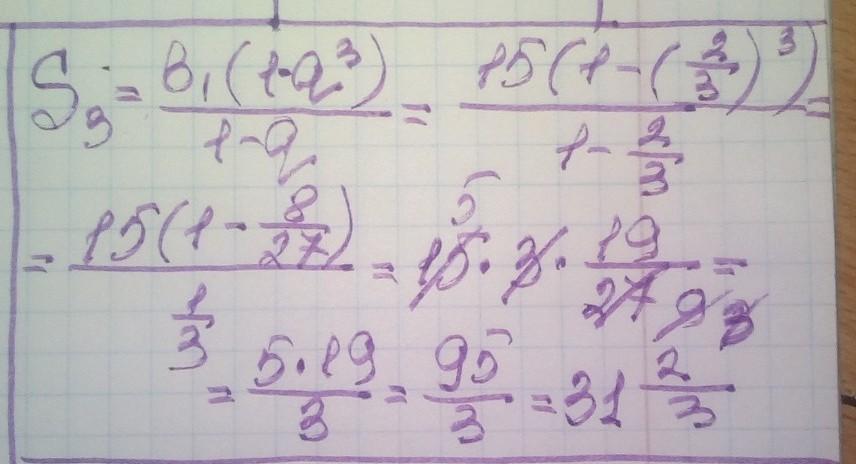 S₃ = b₁(1-q³)/(1-q) = 15(1-(2/3)³)/(1-2/3) =
= 15(1-8/27)/(1/3) = 15̸ 5 · 3̸ · 19/(2̸7̸ 9̸ 3) =
= 5·19/3 = 95/3 = 31 2/3